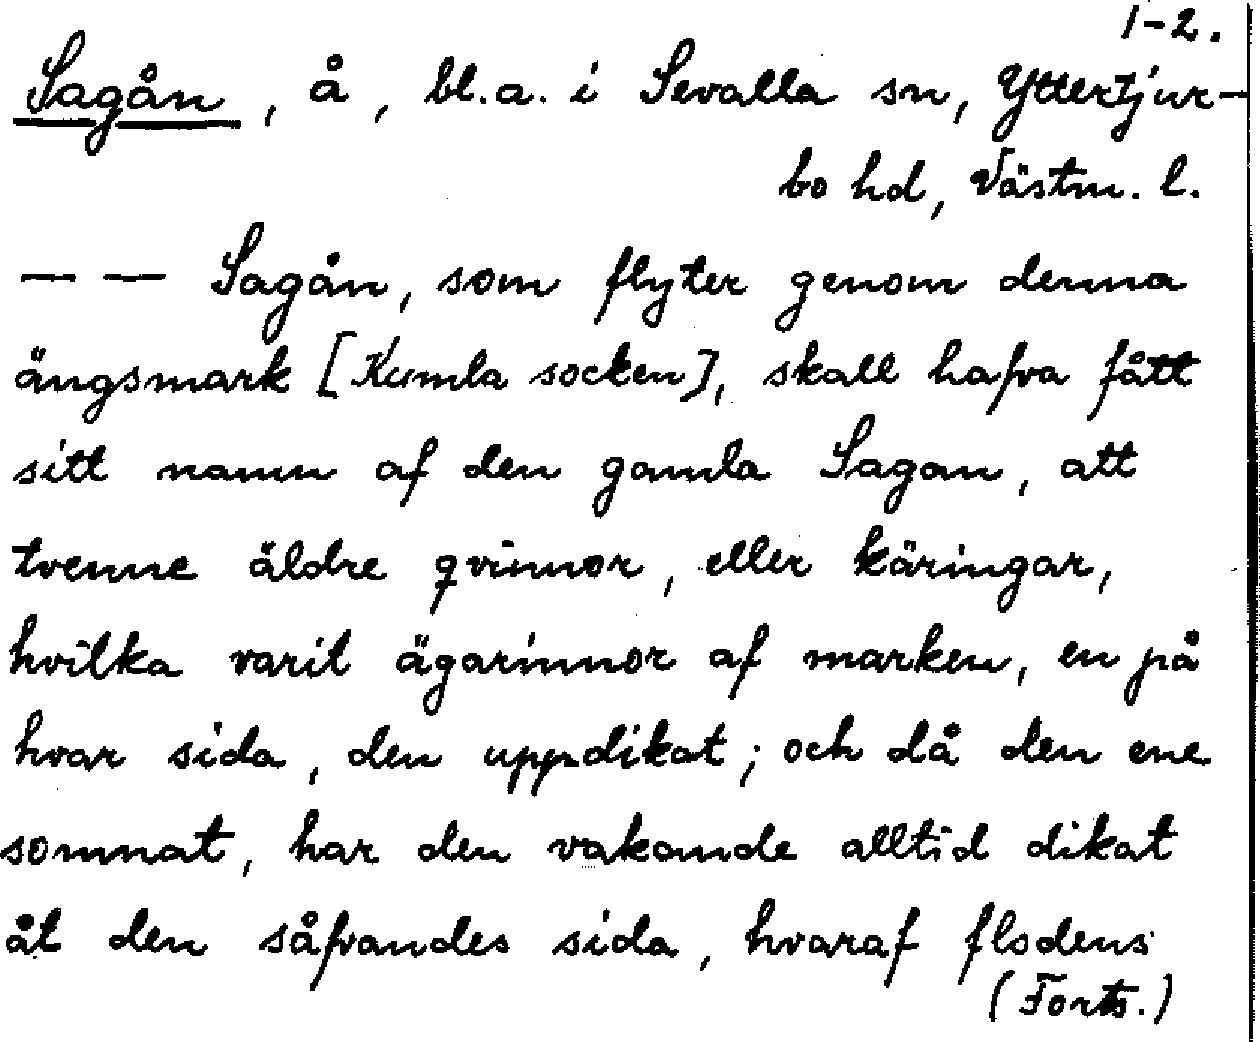 1-2.
Sagån, å, bl.a. i Sevalla sn, Yttertjur-
bo hd, Västm. l.
— — Sagån, som flyter genom denna
ängsmark [Kumla socken], skall hafva fått
sitt namn af den gamla Sagan, att
tvenne äldre qvinnor, eller käringar,
hvilka varit ägarinnor af marken, en på
hvar sida, den uppdikat; och då den ene
somnat, har den vakande alltid dikat
åt den såfvandes sida, hvaraf flodens
(Forts.)